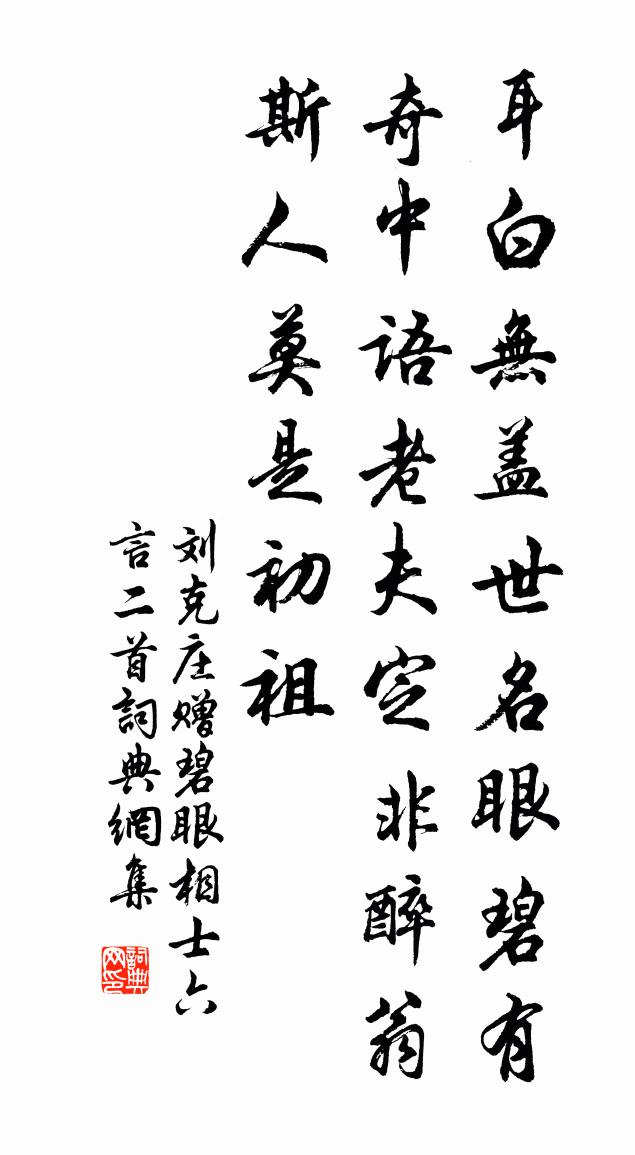 耳白無盖世名眼碧有
奇中語老夫定非醉翁
斯人莫是初祖
刘克庄赠碧眼相士六
言二首詞典網集
詞典
网印